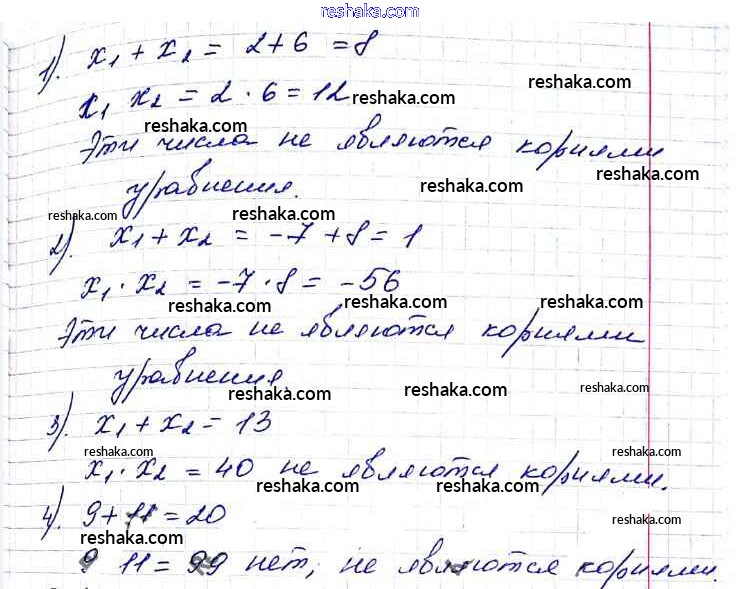 reshaka.com
1). x₁ + x₂ = 2+6 = 8
reshaka.com
x₁ x₂ = 2 · 6 = 12 reshaka.com
reshaka.com
Эти числа не являются корнями
reshaka.com
уравнения. reshaka.com
reshaka.com reshaka.com reshaka.com
2). x₁ + x₂ = -7 + 8 = 1
x₁ · x₂ = -7 · 8 = -56
reshaka.com reshaka.com reshaka.com
Эти числа не являются корнями
уравнения.
reshaka.com reshaka.com reshaka.com
3). x₁ + x₂ = 13
reshaka.com reshaka.com
x₁ · x₂ = 40 не являются корнями.
reshaka.com reshaka.com
4). 9 + 11 = 20
reshaka.com
reshaka.com reshaka.com
9 11 = 99 нет, не являются корнями.
reshaka.com